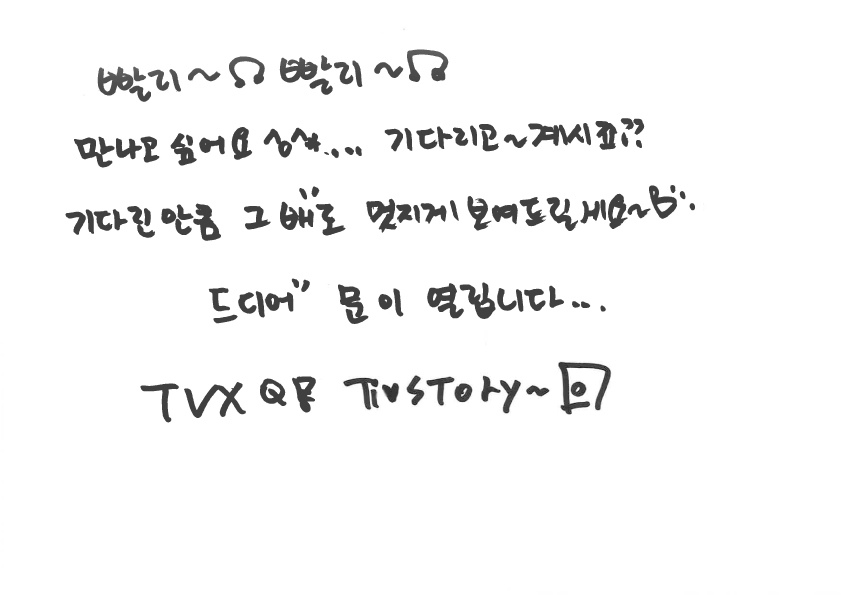 빨리~ 빨리~
만나고 싶어요 ^^.... 기다리고~계시죠??
기다린 만큼 그 배"로 멋지게 보여드릴게요~
드디어" 문이 열립니다...
TVXQ만 TivSTory~